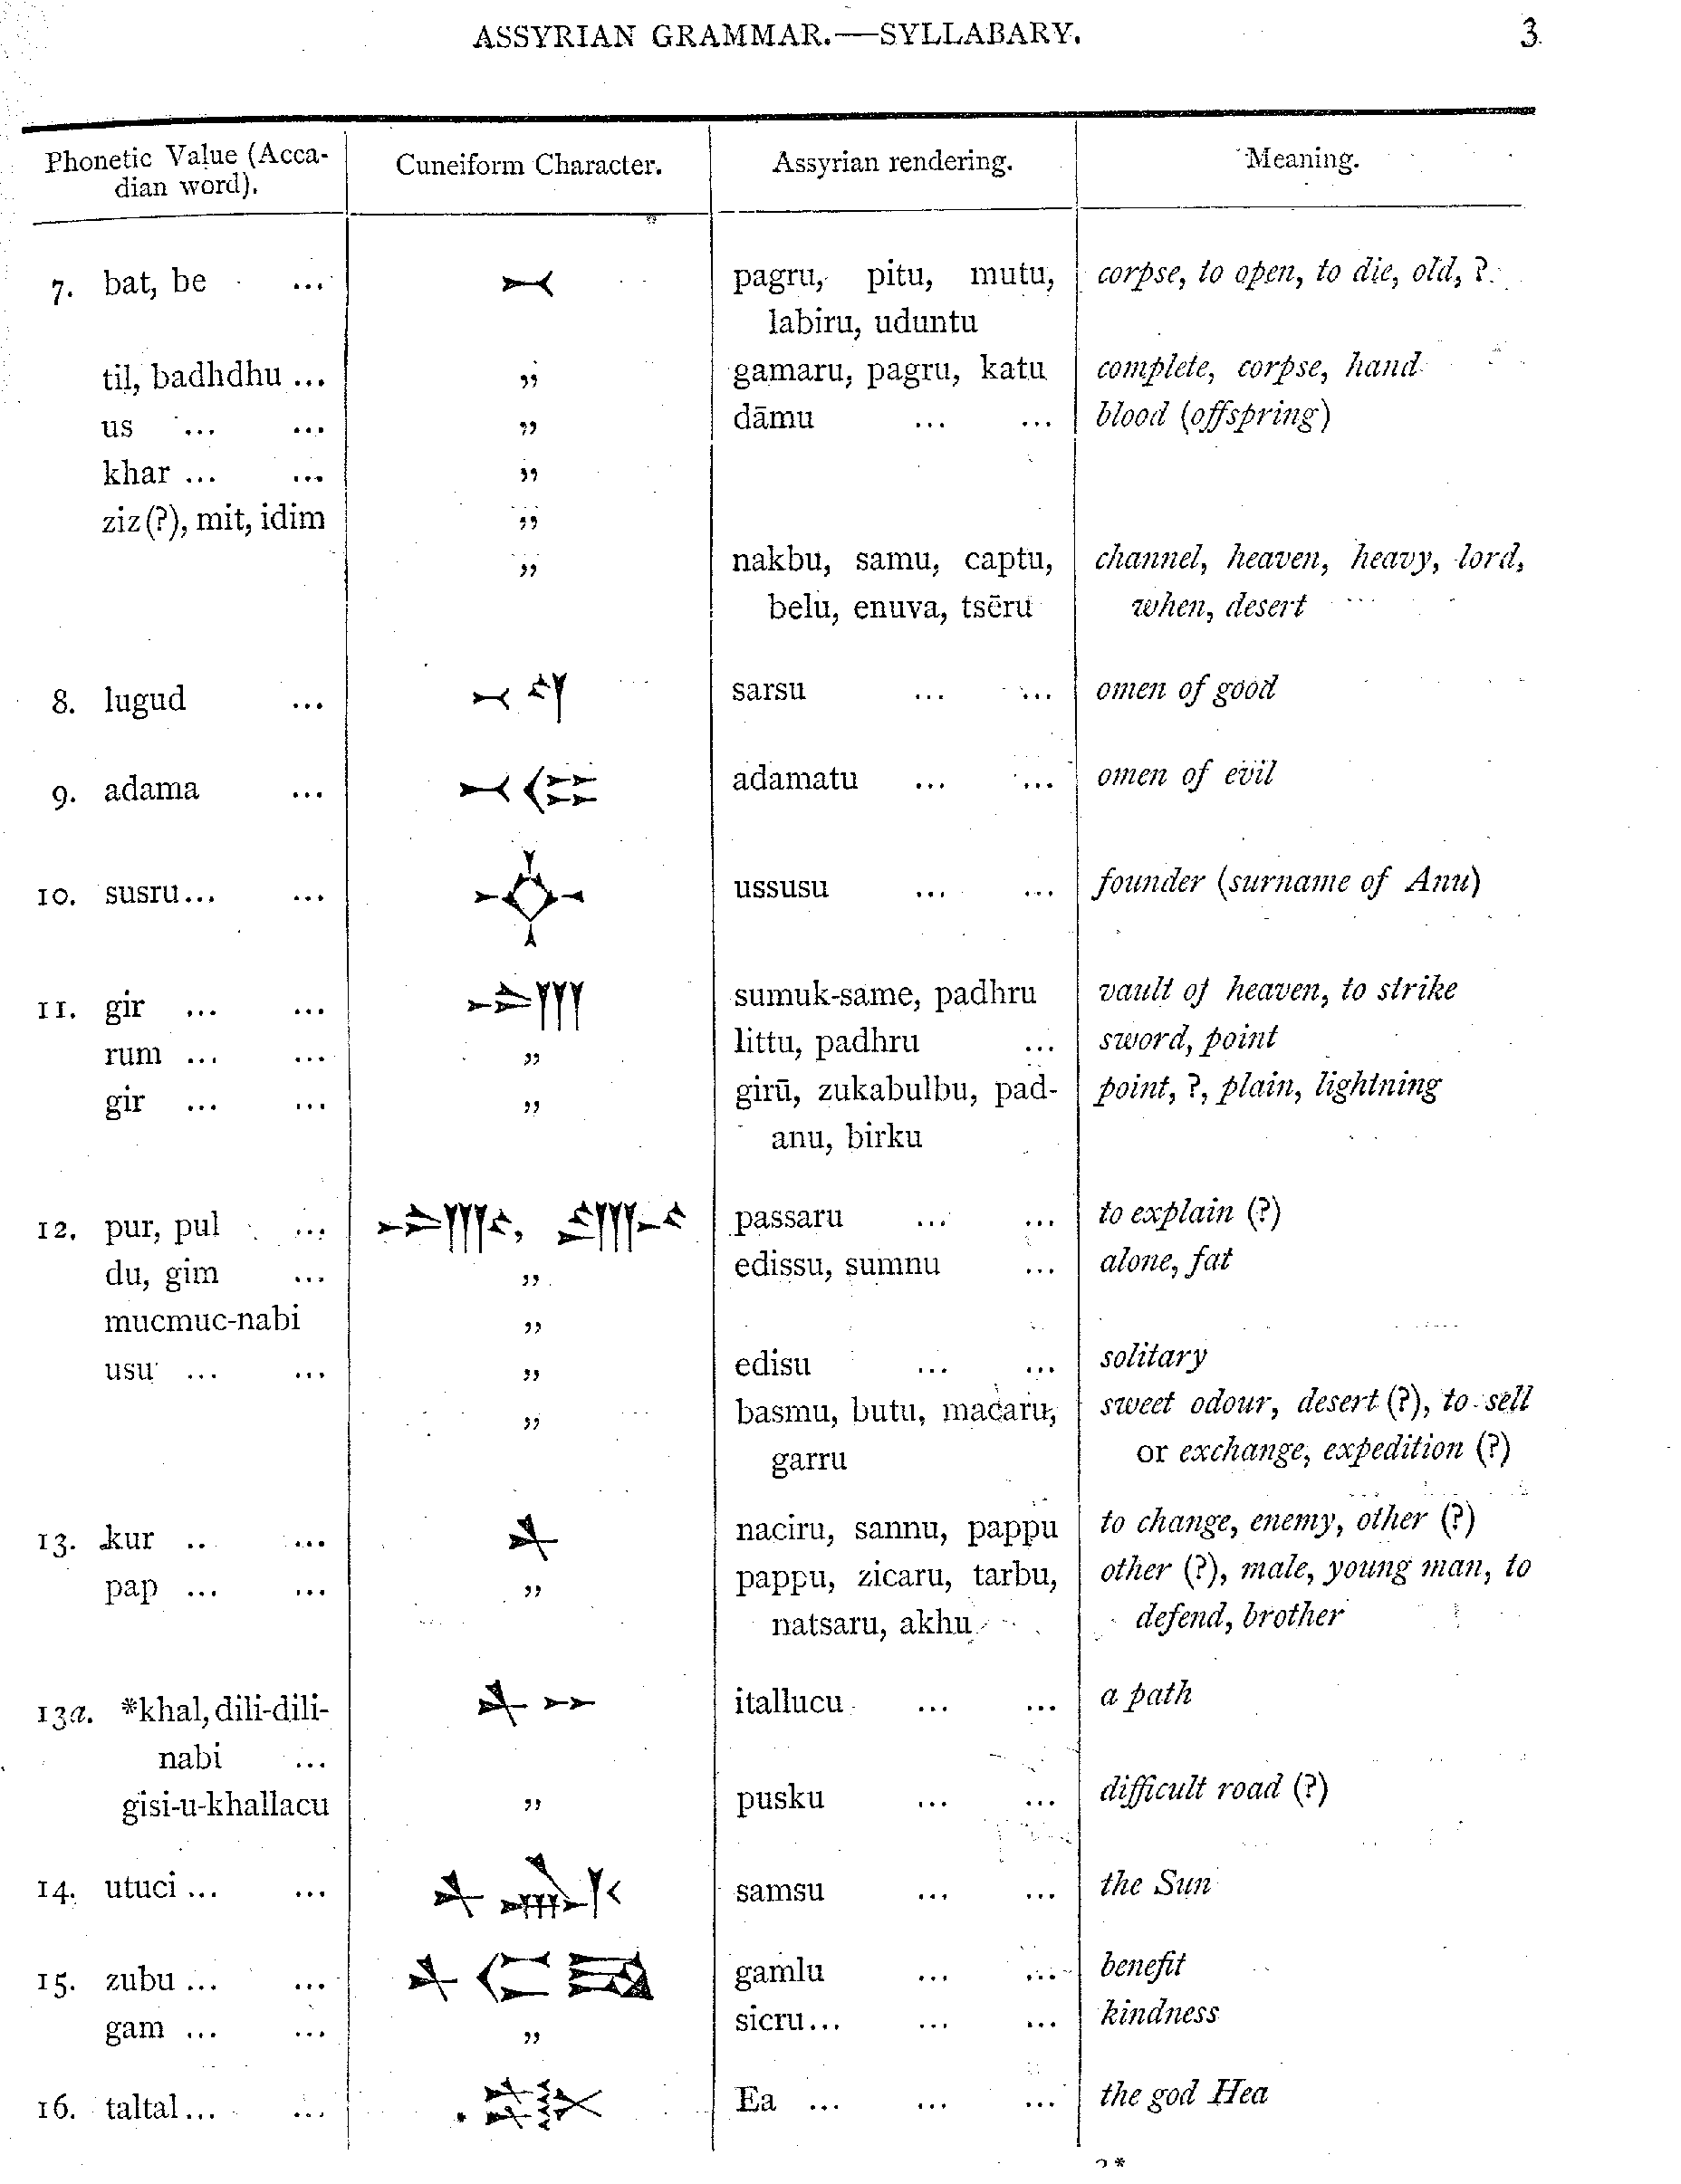 ASSYRIAN GRAMMAR.—SYLLABARY. 3
Phonetic Value (Acca-
dian word).
Cuneiform Character.
Assyrian rendering.
Meaning.
7. bat, be ... pagru, pitu, mutu, corpse, to open, to die, old, ?
labiru, uduntu
til, badhdhu ... „ gamaru, pagru, katu complete, corpse, hand
us ... ... „ dāmu ... ... blood (offspring)
khar ... ... „
ziz (?), mit, idim „
„ nakbu, samu, captu, channel, heaven, heavy, lord,
belu, enuva, tsēru when, desert
8. lugud ... sarsu ... ... omen of good
9. adama ... adamatu ... ... omen of evil
10. susru... ... ussusu ... ... founder (surname of Anu)
11. gir ... ... sumuk-same, padhru vault of heaven, to strike
rum ... ... „ littu, padhru ... sword, point
gir ... ... „ girū, zukabulbu, pad- point, ?, plain, lightning
anu, birku
12. pur, pul ... passaru ... ... to explain (?)
du, gim ... „ edissu, sumnu ... alone, fat
mucmuc-nabi „
usu ... ... „ edisu ... ... solitary
„ basmu, butu, macaru, sweet odour, desert (?), to sell
garru or exchange, expedition (?)
13. kur .. ... naciru, sannu, pappu to change, enemy, other (?)
pap ... ... „ pappu, zicaru, tarbu, other (?), male, young man, to
natsaru, akhu defend, brother
13a. *khal, dili-dili- itallucu ... ... a path
nabi ...
gisi-u-khallacu „ pusku ... ... difficult road (?)
14. utuci ... ... samsu ... ... the Sun
15. zubu ... ... gamlu ... ... benefit
gam ... ... „ sicru... ... ... kindness
16. taltal... ... Ea ... ... ... the god Hea